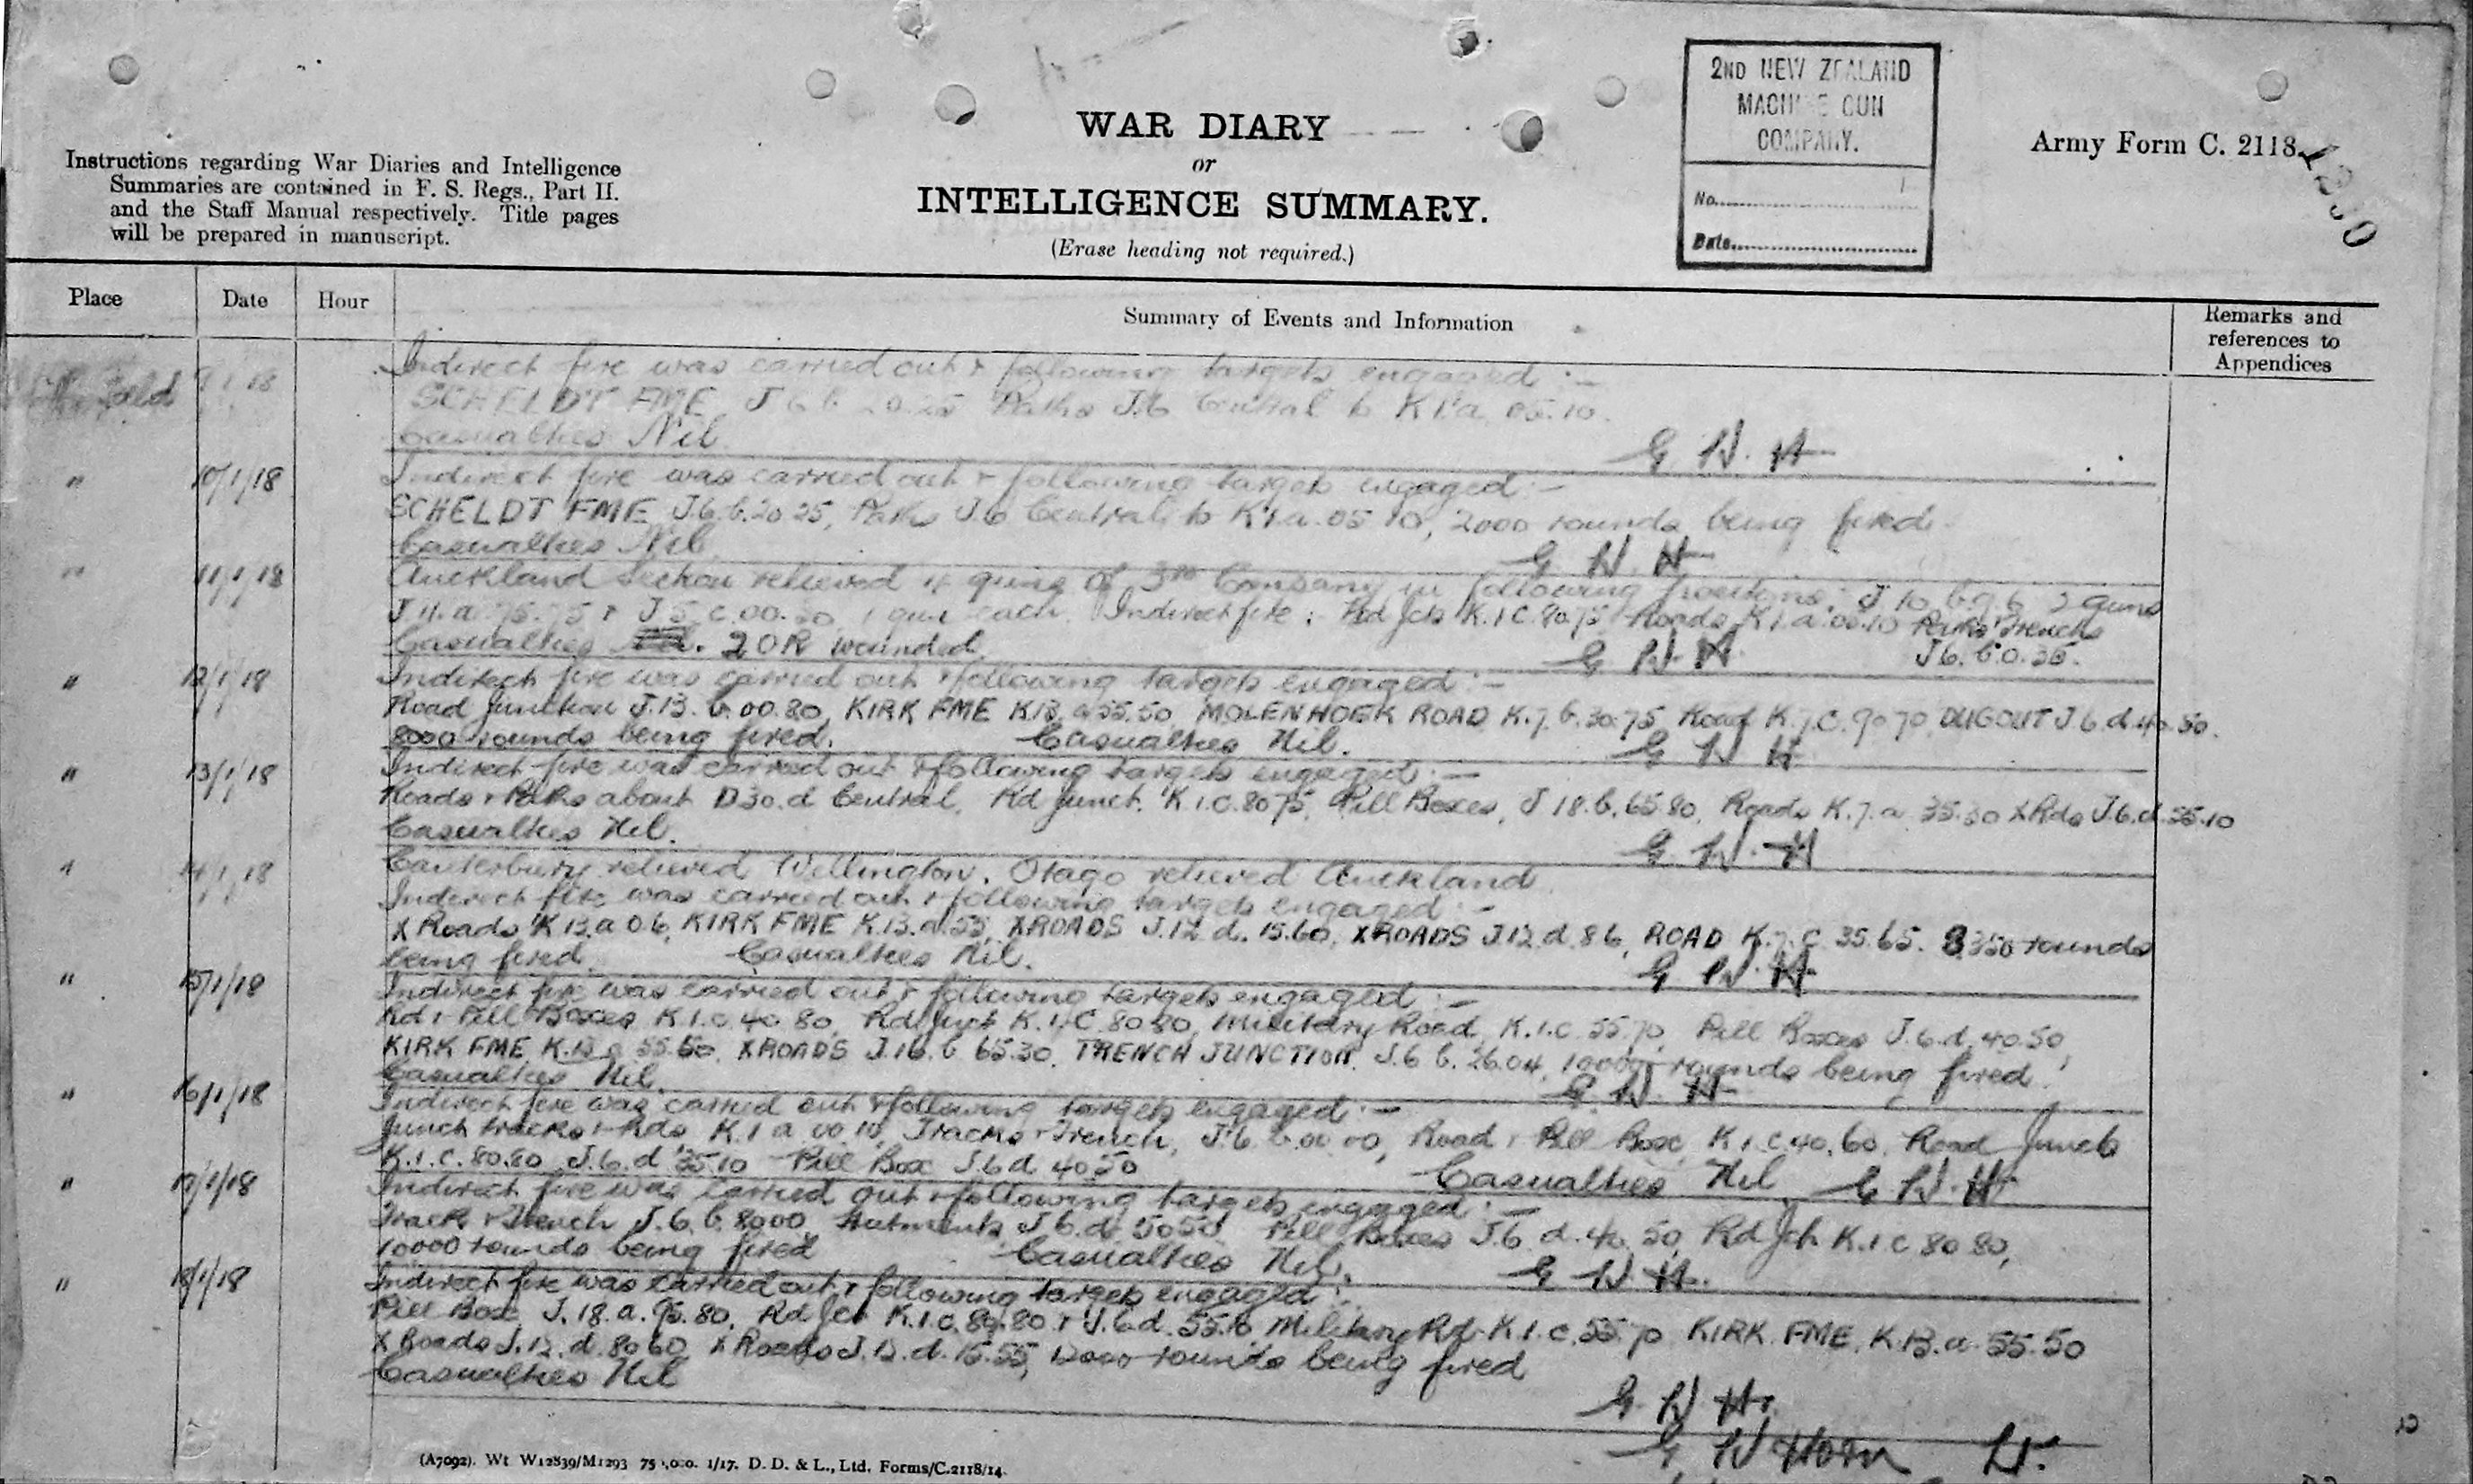 2ND NEW ZEALAND
MACHINE GUN
COMPANY.
No.
Date
WAR DIARY
or
INTELLIGENCE SUMMARY.
(Erase heading not required.)
Army Form C. 2118.
Instructions regarding War Diaries and Intelligence
Summaries are contained in F. S. Regs., Part II.
and the Staff Manual respectively. Title pages
will be prepared in manuscript.
Place Date Hour Summary of Events and Information Remarks and
references to
Appendices
Field 9/1/18 Indirect fire was carried out & following targets engaged :-
SCHELDT FME J6.b.20.25 Paths J.6 Central to K1.a.05.10.
Casualties Nil. G W H
" 10/1/18 Indirect fire was carried out & following targets engaged :-
SCHELDT FME J.6.b.20.25, Paths J.6 Central to K1.a.05 10, 2000 rounds being fired.
Casualties Nil. G W H
" 11/1/18 Auckland Section relieved 4 guns of 3rd Company in following positions: J.10.b.9.6 2 guns
J.11.a.75.75 & J.5.c.00.50 1 gun each. Indirect fire: Rd Jctn K.1.C.80.75 Roads K1.a.00.10 Trench
J6.b.0.35.
Casualties 2 OR wounded. G W H
" 12/1/18 Indirect fire was carried out & following targets engaged :-
Road Junction J.13.b.00.80, KIRK FME K13.a.55.50, MOLENHOEK ROAD K.7.b.30.75, Road K.7.C.90 70 DUGOUT J.6.d.40.50.
8000 rounds being fired. Casualties Nil. G W H
" 13/1/18 Indirect fire was carried out & following targets engaged :-
Roads & Paths about D30.d Central, Rd Junct. K.1.C.80 75, Pill Boxes, J 18.b.65.80, Roads K.7.a.35.30 X Rds J.6.d.55.10
Casualties Nil. G W H
" 14/1/18 Canterbury relieved Wellington. Otago relieved Auckland.
Indirect fire was carried out & following targets engaged :-
X Roads K 13.a 0.6, KIRK FME K.13.a.55, XROADS J.12 d. 15.60, XROADS J.12.d.86, ROAD K.7.C 35.65. 8350 rounds
being fired. Casualties Nil. G W H
" 15/1/18 Indirect fire was carried out & following targets engaged :-
Rd & Pill Boxes K.1.c.40.80, Rd Junct K.1.C.80 80, Military Road, K.1.c.55.70, Pill Boxes J.6.d.40.50
KIRK FME K.13.a 55.50, XROADS J.16.b 65.30, TRENCH JUNCTION J.6 b.26.04, 10000 rounds being fired.
Casualties Nil. G W H
" 16/1/18 Indirect fire was carried out & following targets engaged :-
Junct tracks & Rds K.1 a 00 10, Tracks & Trench, J.6.b.00 00, Road & Pill Box, K.1.C.40.60, Road Junct
K.1.C.80.80, J.6.d 55.10 Pill Box J.6.d 40 50 Casualties Nil G W H
" 17/1/18 Indirect fire was carried out & following targets engaged :-
Track & Trench J.6.b.8000, Hutments J.6.d.5050 Pill Boxes J.6.d.40.50, Rd Jctn K.1.C 80 80,
10000 rounds being fired Casualties Nil. G W H.
" 18/1/18 Indirect fire was carried out & following targets engaged :-
Pill Box J.18.a.95.80, Rd Jct K.1.C.80.80 & J.6.d.55.10 Military Rd K.1.C.55.70 KIRK FME, K.13.a.55.50
X Roads J.12.d.80 60, X Roads J.12.d.15.55, 12000 rounds being fired
Casualties Nil
G W H.
G W Horn Lt.
(A7092). Wt W12839/M1293 75 ,000. 1/17. D. D. & L., Ltd. Forms/C.2118/14.